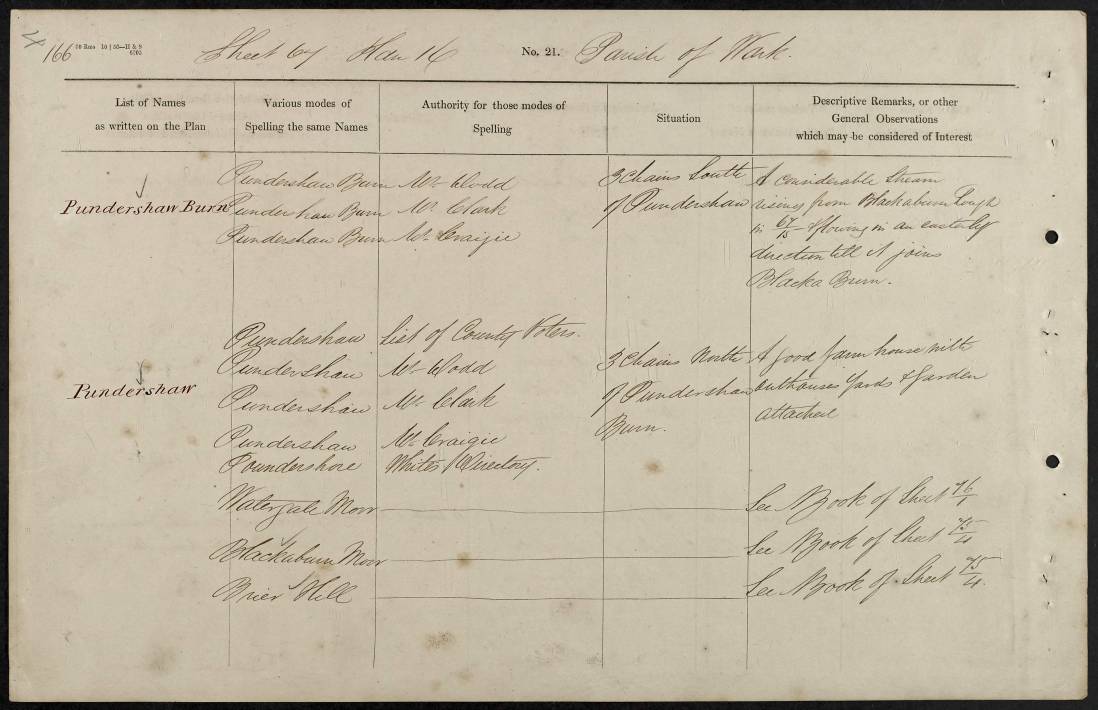 4
166
Sheet 67 Han 16 No. 21. Parish of Wark.
List of Names
as written on the Plan
Various modes of
Spelling the same Names
Authority for those modes of
Spelling
Situation
Descriptive Remarks, or other
General Observations
which may be considered of Interest
Pundershaw Burn
Pundershaw Burn Mr. Dodd
Pundershaw Burn Mr. Clark
Pundershaw Burn Mr. Craigie
3 Chains South
of Pundershaw
A considerable Stream
rising from Blackaburn Lough
in 67/15 & flowing in an easterly
direction till it joins
Blacka Burn.
Pundershaw
Pundershaw List of County Voters.
Pundershaw Mr. Dodd
Pundershaw Mr. Clark
Pundershaw Mr. Craigie
Poundershore Whites Directory.
3 Chains North
of Pundershaw
Burn.
A good farm house with
Outhouses Yards & Garden
attached
Watergate Moor See N Book of Sheet 76/1
Blackaburn Moor See N Book of Sheet 75/4
Brier Hill See N Book of Sheet 75/4.